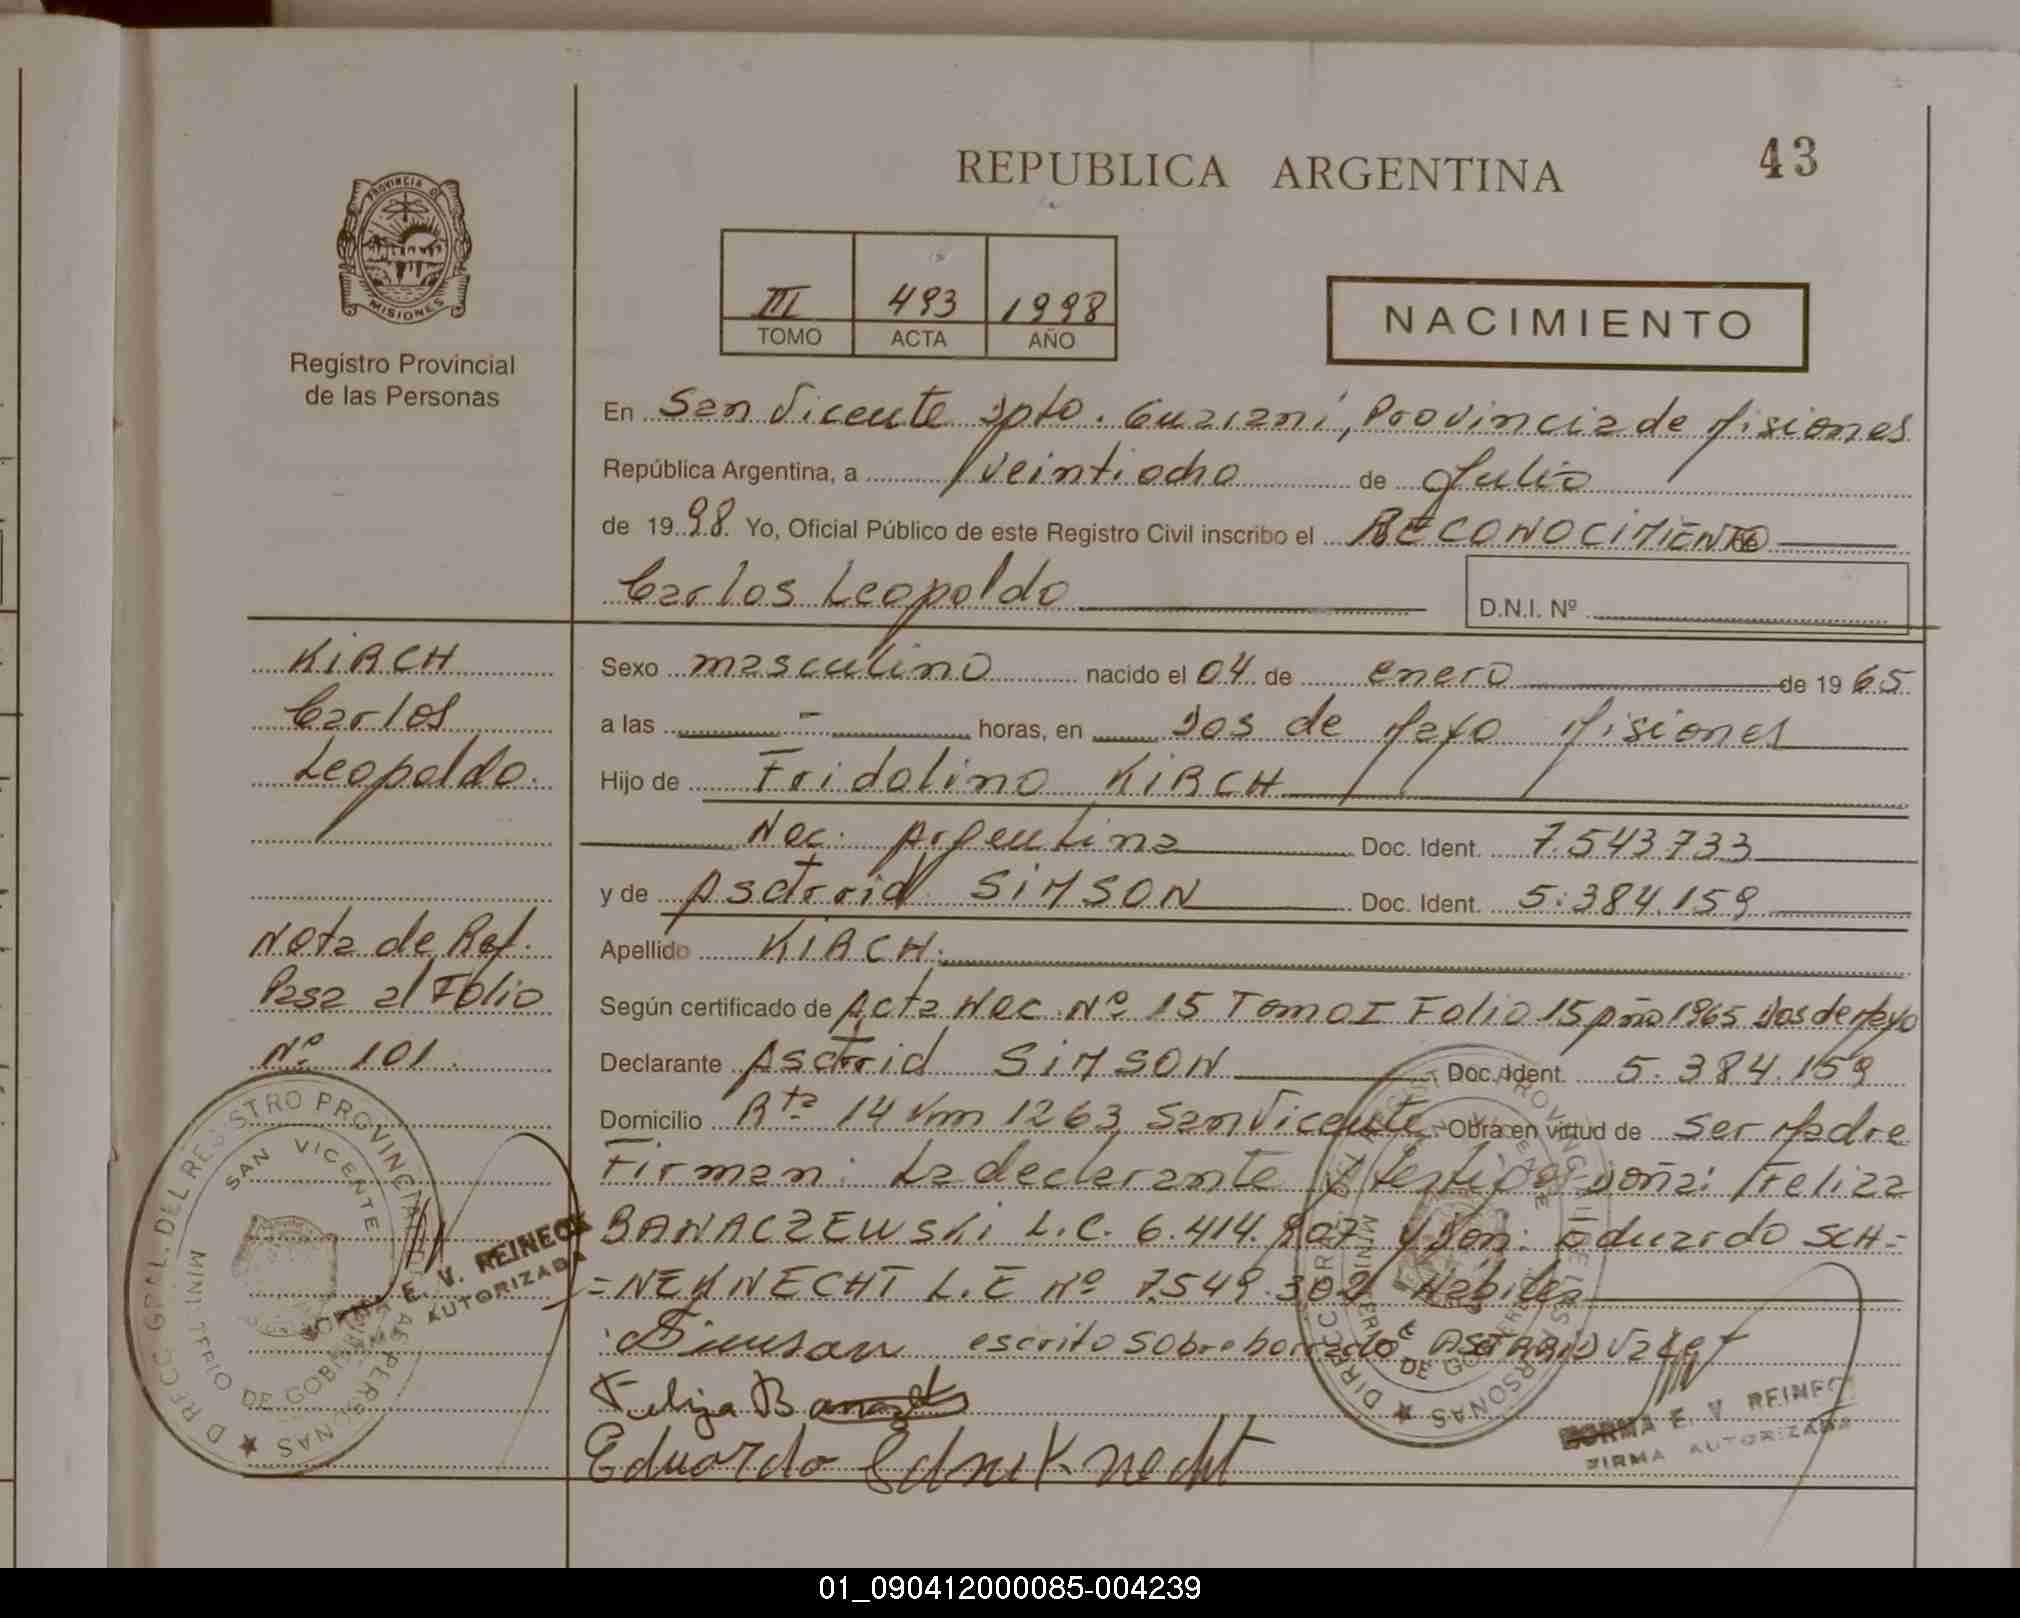 REPUBLICA ARGENTINA
43
PROVINCIA DE
MISIONES
Registro Provincial
de las Personas
III 493 1998
TOMO ACTA AÑO
NACIMIENTO
En San Vicente Dpto. Guaraní, Provincia de Misiones
República Argentina, a veintiocho de Julio
de 1998 Yo, Oficial Público de este Registro Civil inscribo el RECONOCIMIENTO
Carlos Leopoldo
D.N.I. Nº
KIRCH
Carlos
Leopoldo.
Nota de Ref.
Pasa al Folio
Nº 101.
Sexo masculino nacido el 04 de enero de 1965
a las - horas, en Dos de Mayo Misiones
Hijo de Fridolino KIRCH
Nac. Argentina Doc. Ident. 7.543.733
y de Astrid SIMSON Doc. Ident. 5.384.159
Apellido KIRCH.
Según certificado de Acta Nac. Nº 15 Tomo I Folio 15 Año 1965 Dos de Mayo
Declarante Astrid SIMSON Doc. Ident. 5.384.159
Domicilio Rta 14 Km 1263 San Vicente Obra en virtud de ser Madre
Firman: La declarante y testigos doña: Feliza
BANACZEWSKI L.C. 6.414.907 y Don: Eduardo SCH=
=NEKNECHT L.E Nº 7.549.302 Habiles
Simson escrito sobre borrado ASTRID Vale
Feliza
Eduardo Schneknecht
SAN VICENTE
DE GOBIERNO
NORMA E. V. REINECK
FIRMA AUTORIZADA
NORMA E. V. REINECK
FIRMA AUTORIZADA
01_090412000085-004239